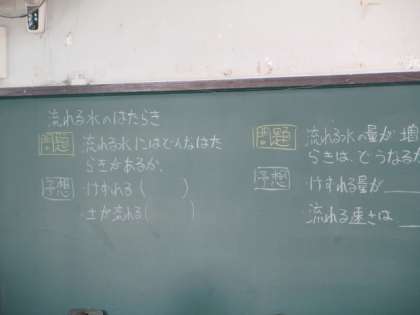 流れる水のはたらき
問題 流れる水にはどんなはた
らきがあるか。
予想 ・けずれる( )
・土が流れる( )
問題 流れる水の量が増
らきは、どうなるか
予想 ・けずれる量が
・流れる速さは